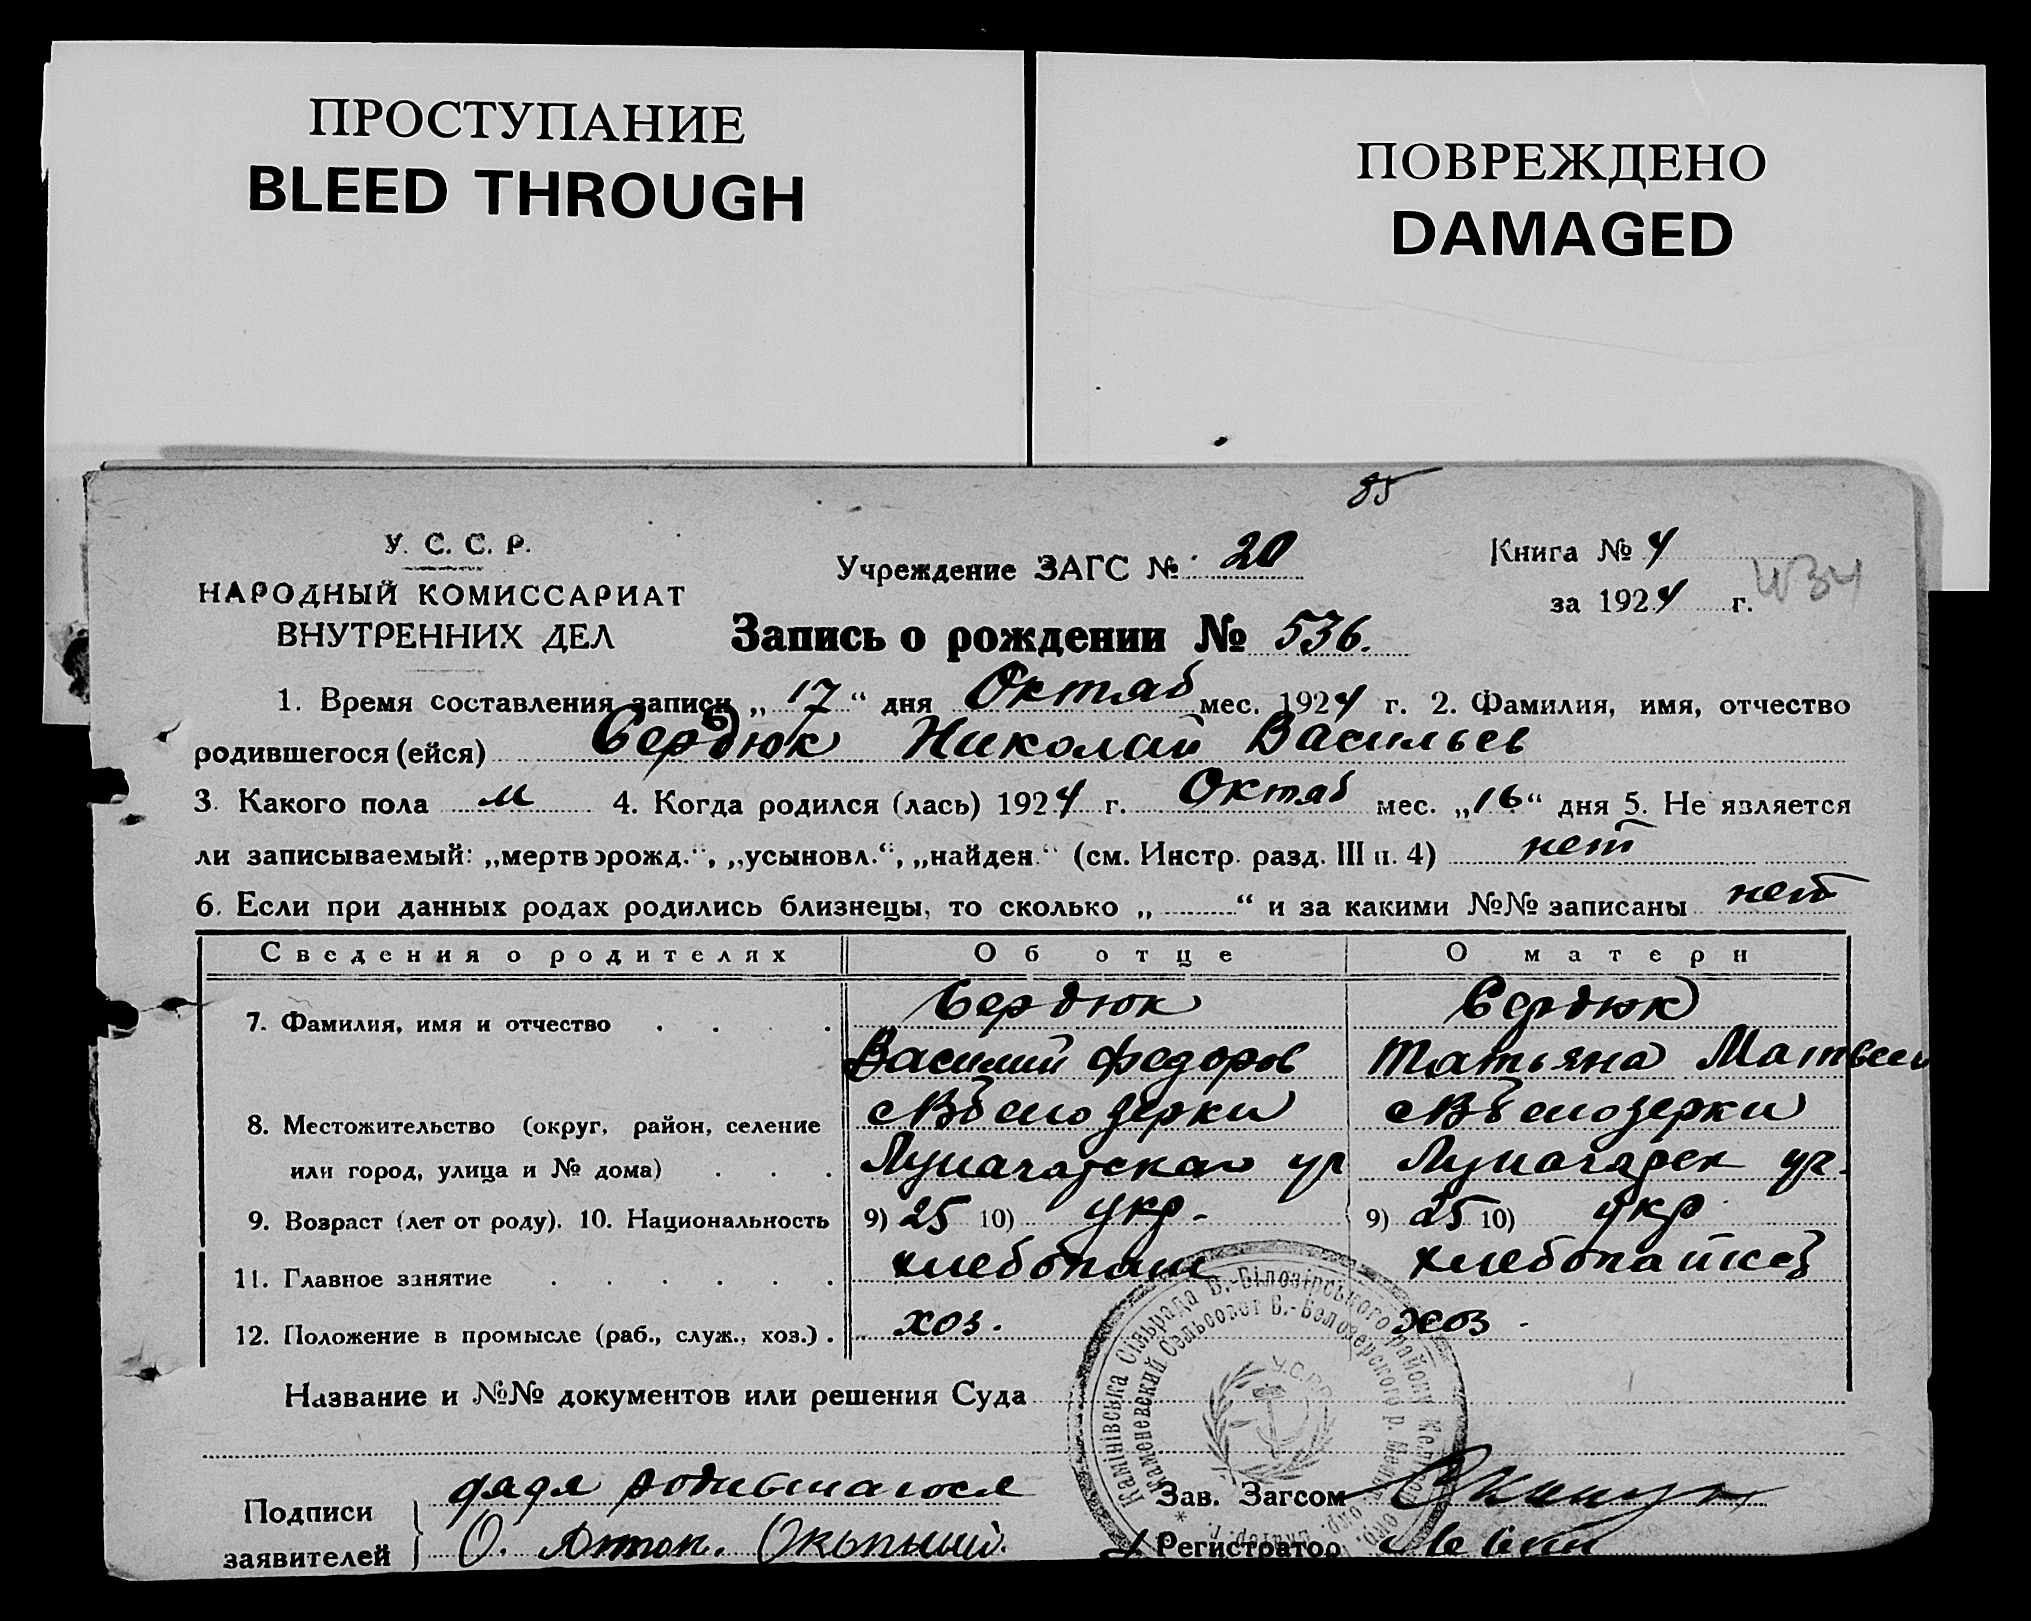 ПРОСТУПАНИЕ
BLEED THROUGH
ПОВРЕЖДЕНО
DAMAGED
85
У. С. С. Р.
НАРОДНЫЙ КОМИССАРИАТ
ВНУТРЕННИХ ДЕЛ
Учреждение ЗАГС № 20
Книга № 4
за 1924 г.
Запись о рождении № 536.
1. Время составления записи „17“ дня Октяб мес. 1924 г. 2. Фамилия, имя, отчество
родившегося (ейся) Сердюк Николай Васильев
3. Какого пола м 4. Когда родился (лась) 1924 г. Октяб мес. „16“ дня 5. Не является
ли записываемый: „мертворожд.“, „усыновл.“, „найден.“ (см. Инстр. разд. III п. 4) нет
6. Если при данных родах родились близнецы, то сколько „ “ и за какими №№ записаны нет
Сведения о родителях Об отце О матери
7. Фамилия, имя и отчество Сердюк Сердюк
Василий Федоров Татьяна Матвеев
8. Местожительство (округ, район, селение
или город, улица и № дома)
9. Возраст (лет от роду). 10. Национальность 9) 25 10) укр. 9) 25 10) укр
11. Главное занятие хлебопаш
12. Положение в промысле (раб., служ., хоз.) хоз. хоз.
Название и №№ документов или решения Суда
Камінівська Сільрада В.-Білозірського району
Каменевский Сельсовет В.-Белозерского р.
У.С.Р.Р.
Подписи
заявителей
дядя родившагося
О. Антон.
Зав. Загсом
Регистратор